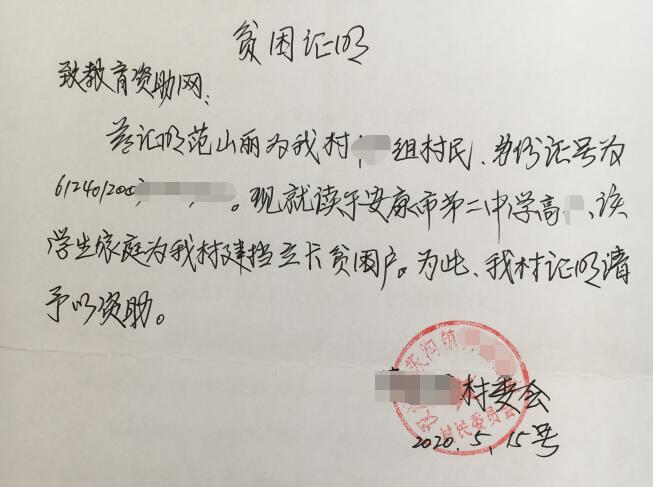 贫困证明
致教育资助网:
兹证明范山丽为我村 组村民、身份证号为
61240120 。现就读于安康市第二中学高 、该
学生家庭为我村建挡立卡贫困户。为此、我村证明请
予以资助。
村委会
2020.5.15号
镇
村民委员会